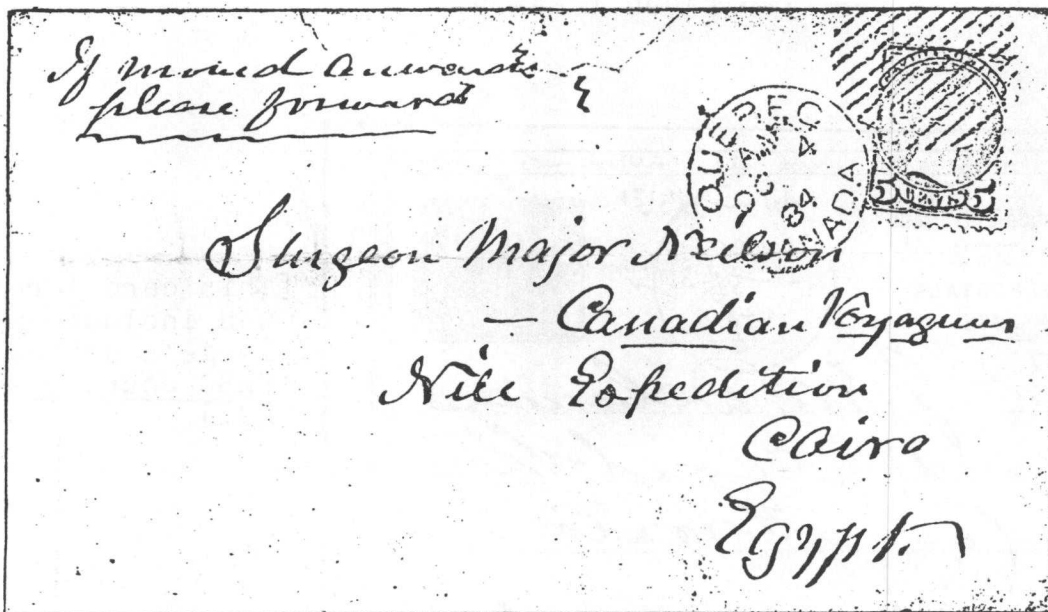 If moved onwards
please forward
QUEBEC
AM
OC 4
84
CANADA
5 CENTS 5
Surgeon Major Neilson
— Canadian Voyageurs
Nile Expedition
Cairo
Egypt.